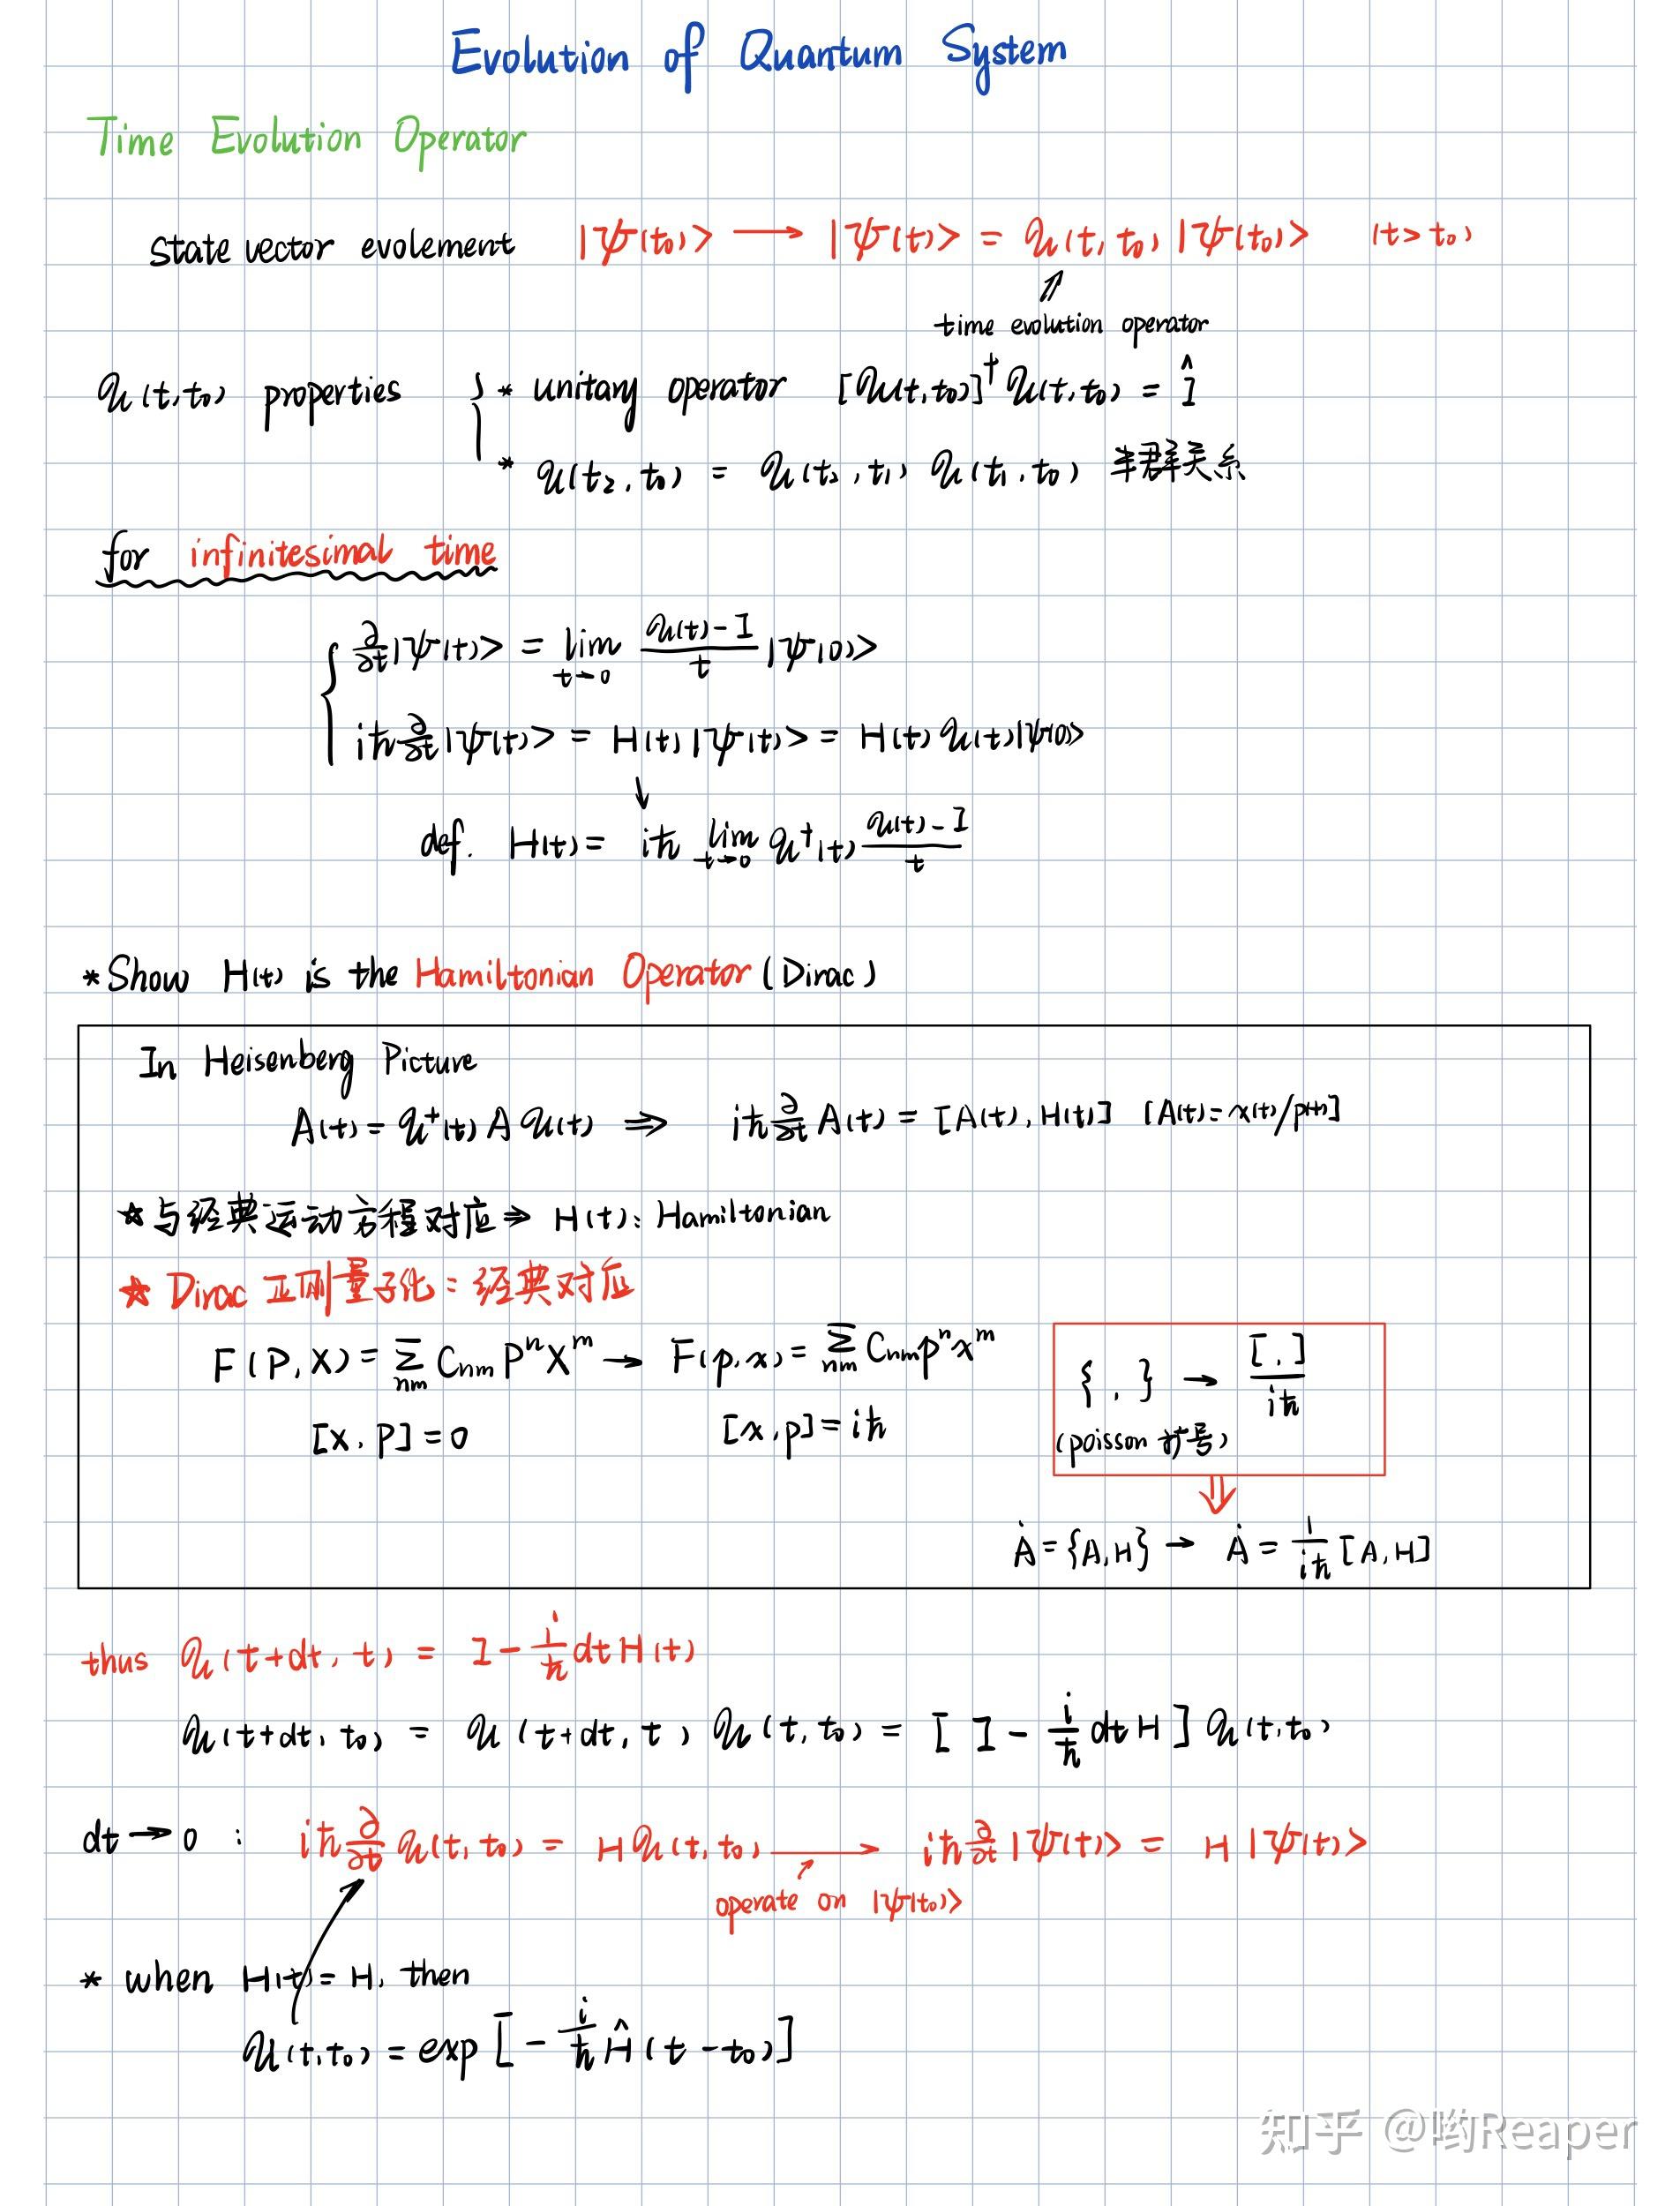 Evolution of Quantum System
Time Evolution Operator
state vector evolement |ψ(t₀)> → |ψ(t)> = 𝒰(t, t₀) |ψ(t₀)> (t > t₀)
⇑
time evolution operator
𝒰(t, t₀) properties { * unitary operator [𝒰(t, t₀)]† 𝒰(t, t₀) = Î
* 𝒰(t₂, t₀) = 𝒰(t₂, t₁) 𝒰(t₁, t₀) 半群关系
for infinitesimal time
{ ∂/∂t |ψ(t)> = lim_{t→0} (𝒰(t) - I)/t |ψ(0)>
iħ ∂/∂t |ψ(t)> = H(t) |ψ(t)> = H(t) 𝒰(t) |ψ(0)>
↓
def. H(t) = iħ lim_{t→0} 𝒰†(t) (𝒰(t) - I)/t
* Show H(t) is the Hamiltonian Operator (Dirac)
In Heisenberg Picture
A(t) = 𝒰†(t) A 𝒰(t) ⇒ iħ ∂/∂t A(t) = [A(t), H(t)] [A(t) = x(t)/p(t)]
☆ 与经典运动方程对应 ⇒ H(t): Hamiltonian
☆ Dirac 正则量子化: 经典对应
F(P, X) = Σ_{nm} C_{nm} Pⁿ Xᵐ → F(p, x) = Σ_{nm} C_{nm} pⁿ xᵐ
[X, P] = 0 [x, p] = iħ
{ , } → [ , ]/iħ
(poisson 括号)
⇓
Ȧ = {A, H} → Ȧ = 1/iħ [A, H]
thus 𝒰(t+dt, t) = I - i/ħ dt H(t)
𝒰(t+dt, t₀) = 𝒰(t+dt, t) 𝒰(t, t₀) = [ I - i/ħ dt H ] 𝒰(t, t₀)
dt → 0 : iħ ∂/∂t 𝒰(t, t₀) = H 𝒰(t, t₀) → iħ ∂/∂t |ψ(t)> = H |ψ(t)>
operate on |ψ(t₀)>
* when H(t) = H, then
𝒰(t, t₀) = exp [ - i/ħ Ĥ (t - t₀) ]
知乎 @哟Reaper